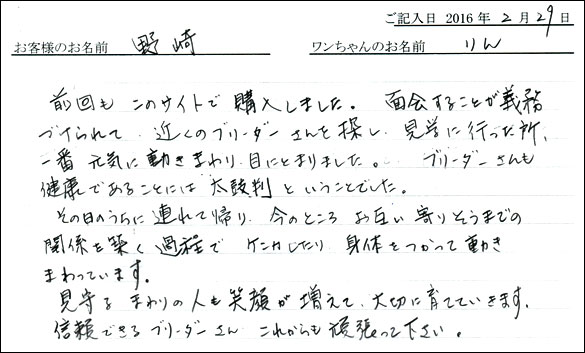 ご記入日 2016年 2月 29日
お客様のお名前 野崎 ワンちゃんのお名前 りん
前回も このサイトで 購入しました。 面会することが義務
づけられて、近くのブリーダーさんを探し、見学に行った所、
一番 元気に動きまわり、目にとまりました。 ブリーダーさんも
健康であることには 太鼓判 ということでした。
その日のうちに 連れて帰り、今のところ お互い 寄りそうまでの
関係を築く過程で ケンカしたり 身体をつかって動き
まわっています。
見守る まわりの人も 笑顔が 増えて、大切に育てていきます。
信頼できる ブリーダーさん これからも 頑張って下さい。